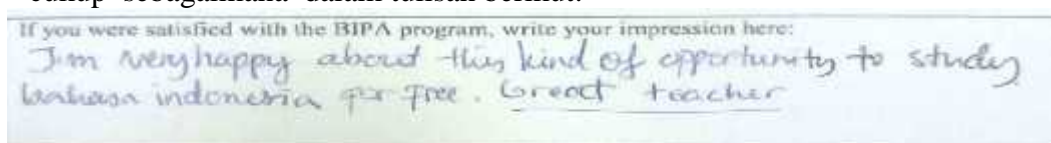 cukup sebagaimana dalam tulisan berikut:
If you were satisfied with the BIPA program, write your impression here:
I'm very happy about this kind of opportunity to study
bahasa indonesia for free. Great teacher